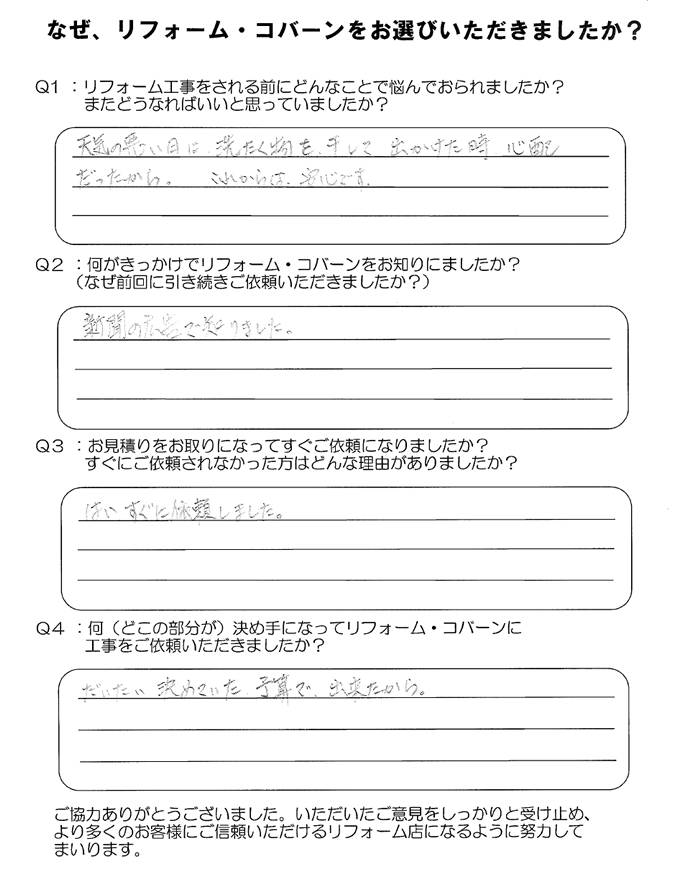 なぜ、リフォーム・コバーンをお選びいただきましたか？
Q1 ：リフォーム工事をされる前にどんなことで悩んでおられましたか？
またどうなればいいと思っていましたか？
天気の悪い日に、洗たく物を、干して 出かけた時 心配
だったから。 これからは、安心です。
Q2 ：何がきっかけでリフォーム・コバーンをお知りにましたか？
（なぜ前回に引き続きご依頼いただきましたか？）
新聞の広告で知りました。
Q3 ：お見積りをお取りになってすぐご依頼になりましたか？
すぐにご依頼されなかった方はどんな理由がありましたか？
はい すぐに依頼しました。
Q4 ：何（どこの部分が）決め手になってリフォーム・コバーンに
工事をご依頼いただきましたか？
だいたい 決めていた 予算で、出来たから。
ご協力ありがとうございました。いただいたご意見をしっかりと受け止め、
より多くのお客様にご信頼いただけるリフォーム店になるように努力して
まいります。